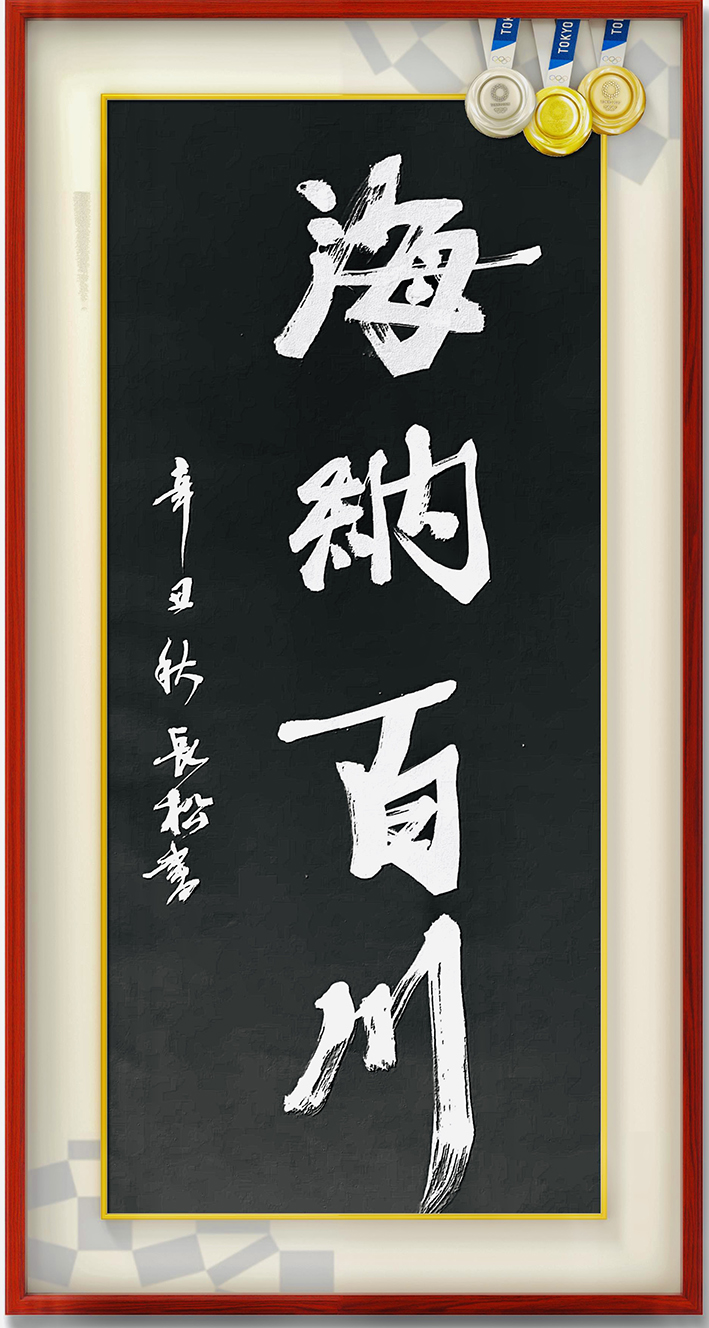 海納百川
辛丑秋長松書
TOK
TOKYO
TO